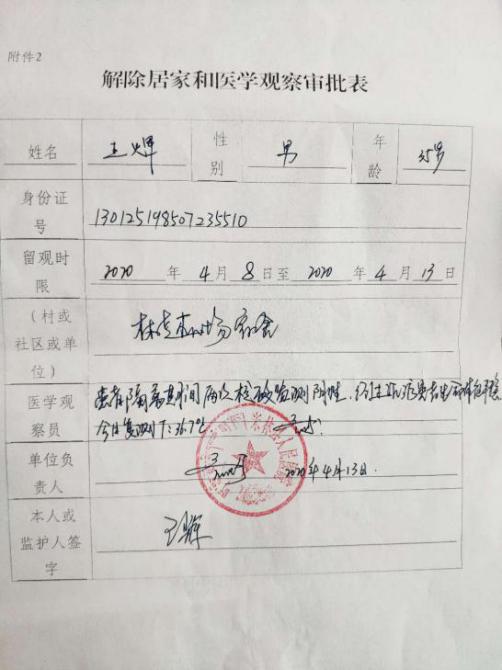 附件2
解除居家和医学观察审批表
姓名 王辉 性别 男 年龄 35岁
身份证号 130125198507235510
留观时限 2020 年 4 月 8 日至 2020 年 4 月 13 日
(村或社区或单位) 宿舍
医学观察员 患者隔离期间两次核酸检测阴性.
今日复测T:36.7℃
单位负责人 2020年4月13日.
本人或监护人签字 王辉